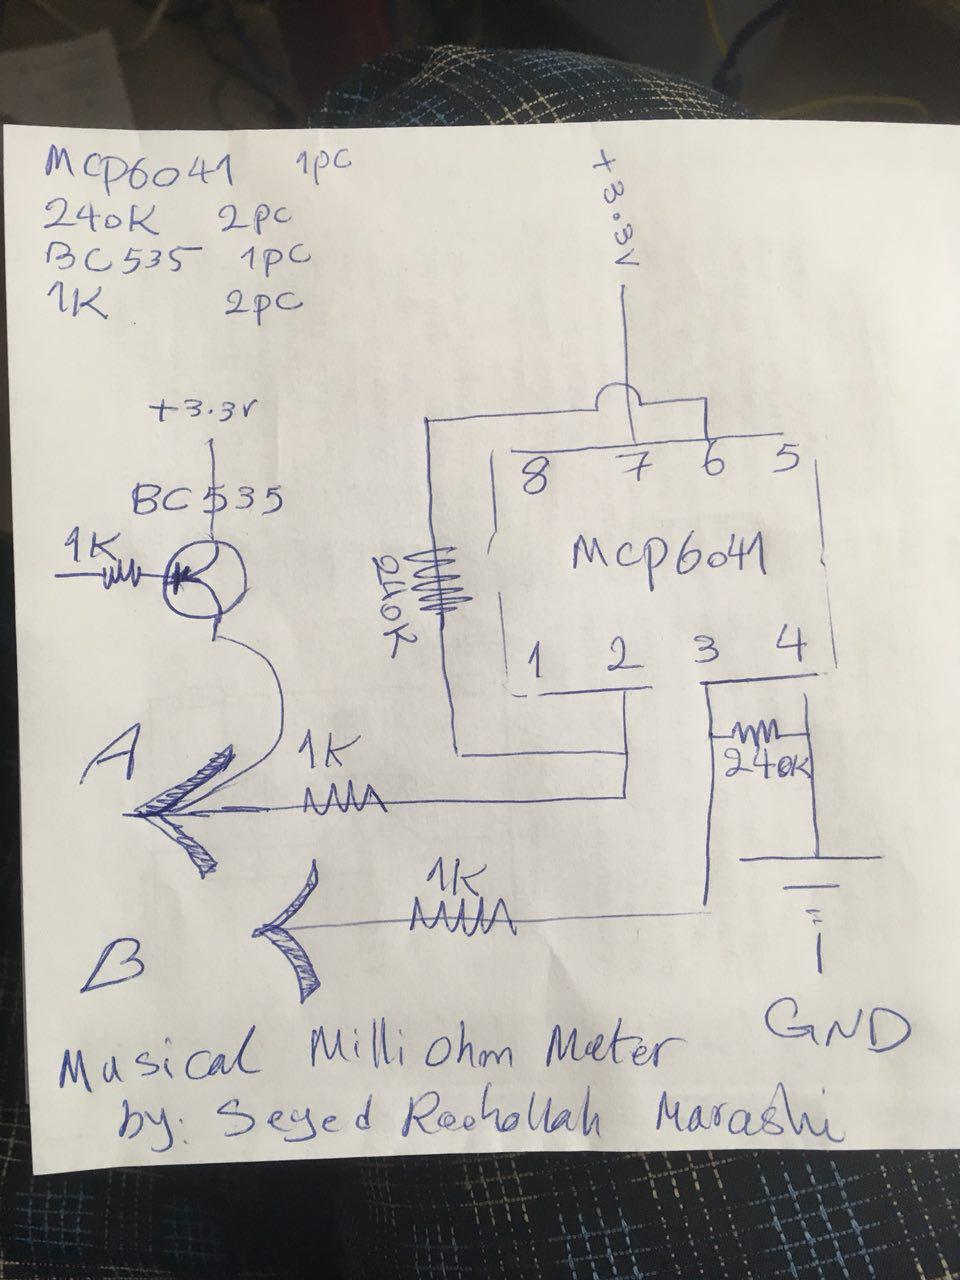 MCP6041 1pc
240K 2pc
BC535 1pc
1K 2pc
+3.3V
+3.3V
BC535
1K
8 7 6 5
MCP6041
240K
1 2 3 4
240K
A
1K
1K
B
GND
Musical Milli Ohm Meter
by: Seyed Roohollah Marashi